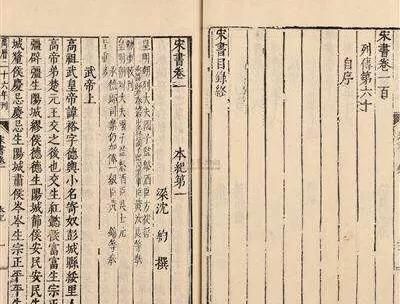 宋書卷一百
列傳第六十
自序
宋書目錄終
宋書卷一 本紀第一
梁沈約撰
皇明朝列大夫國子監祭酒臣方從哲
武帝上
高祖武皇帝諱裕字德輿小名寄奴彭城縣綏里人
高帝弟楚元王交之後也交生紅懿侯富富生宗
彊辟彊生陽城繆侯德德生陽城節侯安民安民
城釐侯慶忌慶忌生陽城肅侯岑岑生宗正平平生
二十六年刊
宋書卷一